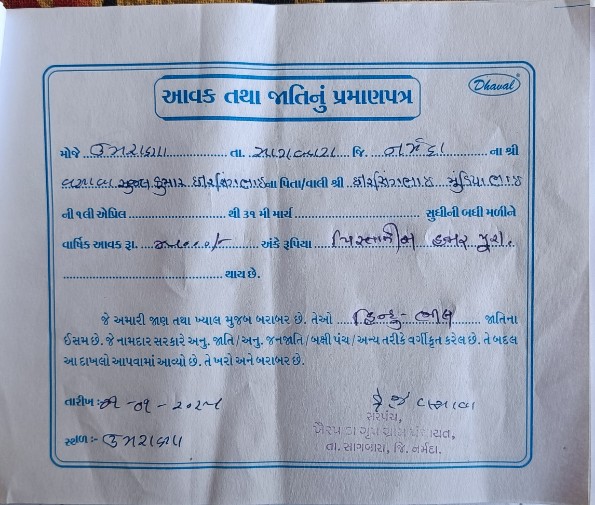 Dhaval
આવક તથા જાતિનું પ્રમાણપત્ર
મોજે ઉમરાણ તા. સાગબારા જિ. નર્મદા ના શ્રી
વસાવા કુમાર ધીરસિંગભાઇ ના પિતા/વાલી શ્રી ધીરસિંગભાઇ ભાઇ
ની ૧લી એપ્રિલ થી ૩૧ મી માર્ચ સુધીની બધી મળીને
વાર્ષિક આવક રૂા. અંકે રૂપિયા હજાર પુરા.
થાય છે.
જે અમારી જાણ તથા ખ્યાલ મુજબ બરાબર છે. તેઓ હિન્દુ - ભીલ જાતિના
ઈસમ છે. જે નામદાર સરકારે અનુ. જાતિ / અનુ. જનજાતિ / બક્ષી પંચ / અન્ય તરીકે વર્ગીકૃત કરેલ છે. તે બદલ
આ દાખલો આપવામાં આવ્યો છે. તે ખરો અને બરાબર છે.
તારીખ:
વસાવા
સરપંચ,
ગૃપ ગ્રામ પંચાયત,
સ્થળ :-
તા. સાગબારા, જિ. નર્મદા.